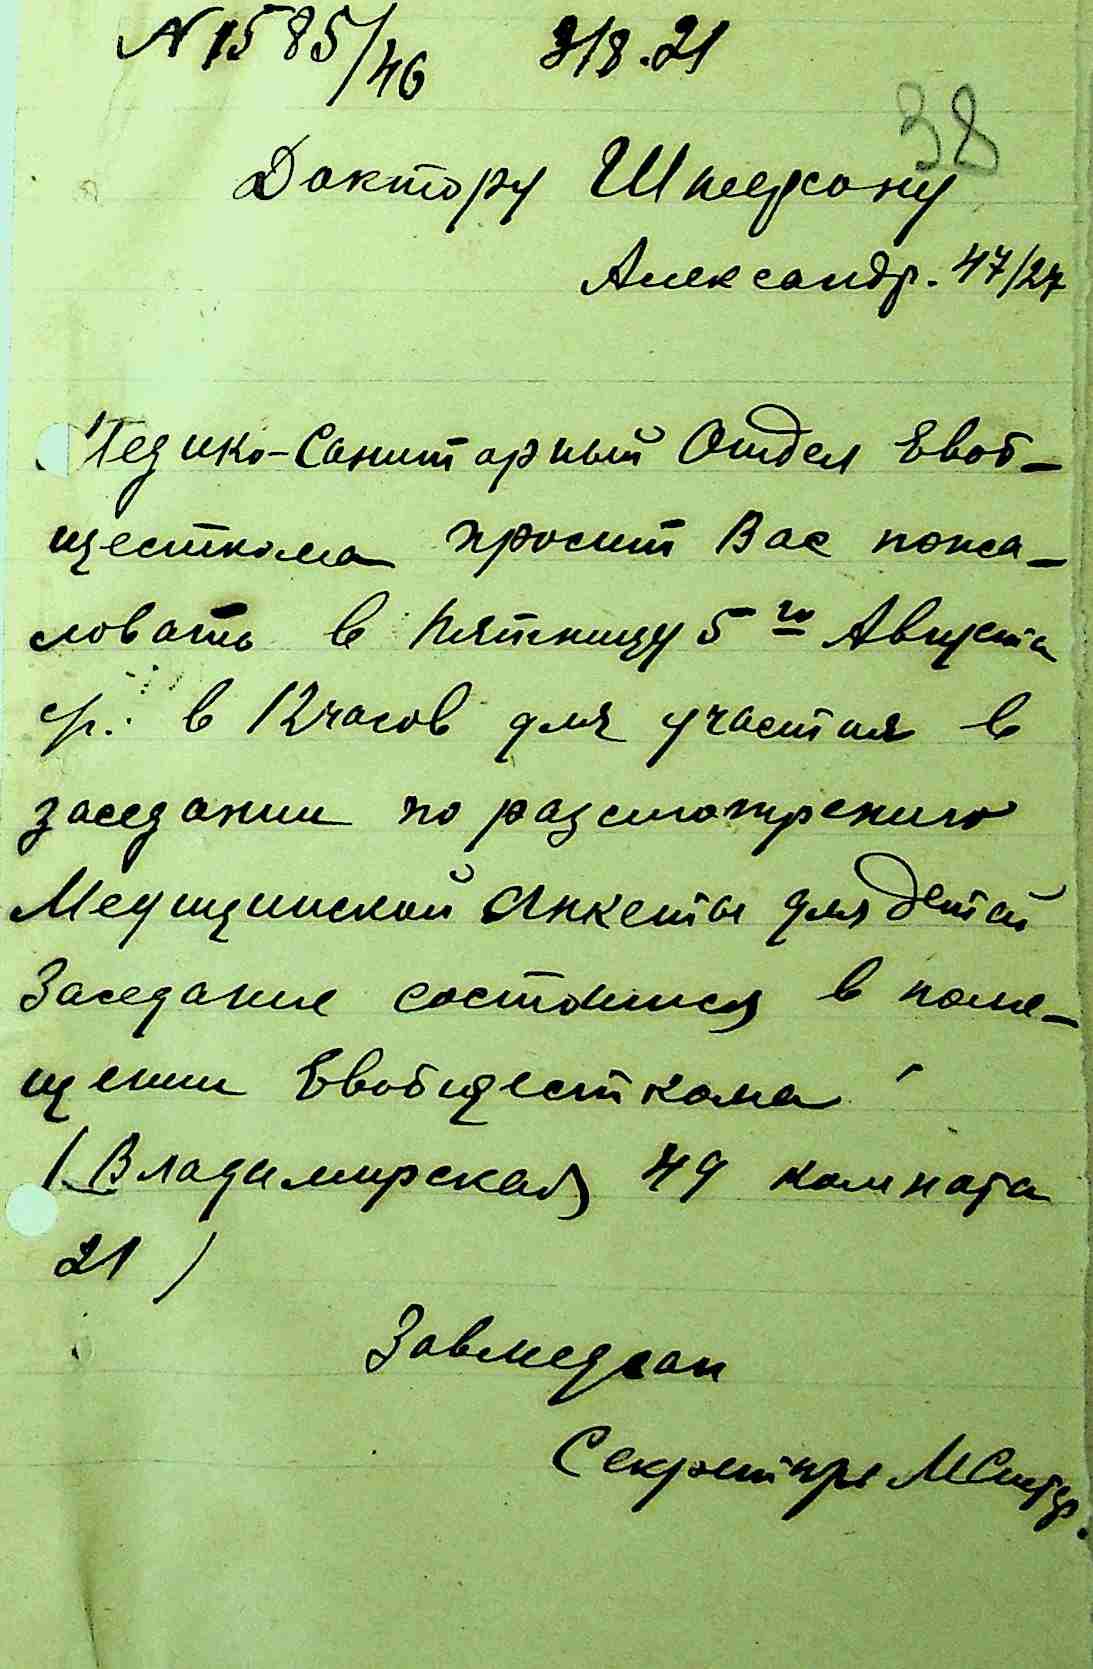 N 1585/46 3/8.21
38
Доктору
Александр. 47/27
Медико-Санитарный Отдел Евоб-
щесткома просит Вас пожа-
ловать в пятницу 5го Августа
с/г. в 12 часов для участия в
заседании по разсмотрению
Медицинской Анкеты для детей
Заседание состоится в поме-
щении Евобщесткома
(Владимирская 49 комната
21)
Завмедсан
Секретарь